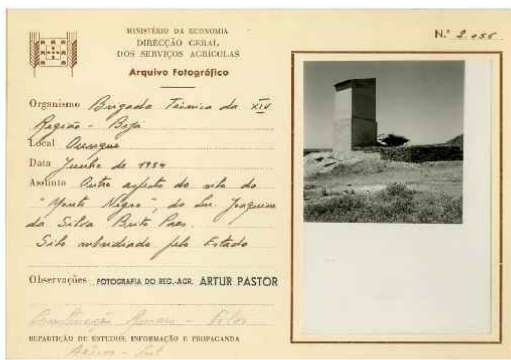 MINISTÉRIO DA ECONOMIA
DIRECÇÃO GERAL
DOS SERVIÇOS AGRÍCOLAS
Arquivo Fotográfico
N.º 2.056
Organismo Brigada Técnica da XIV
Região - Beja
Local Ourique
Data Junho de 1954
Assunto Outro aspecto do silo do
"Monte Negro", do Sr. Joaquim
da Silva Brito Paes.
Silo subsidiado pelo Estado
Observações FOTOGRAFIA DO REG.-AGR. ARTUR PASTOR
Construções Rurais - Silos
REPARTIÇÃO DE ESTUDOS, INFORMAÇÃO E PROPAGANDA